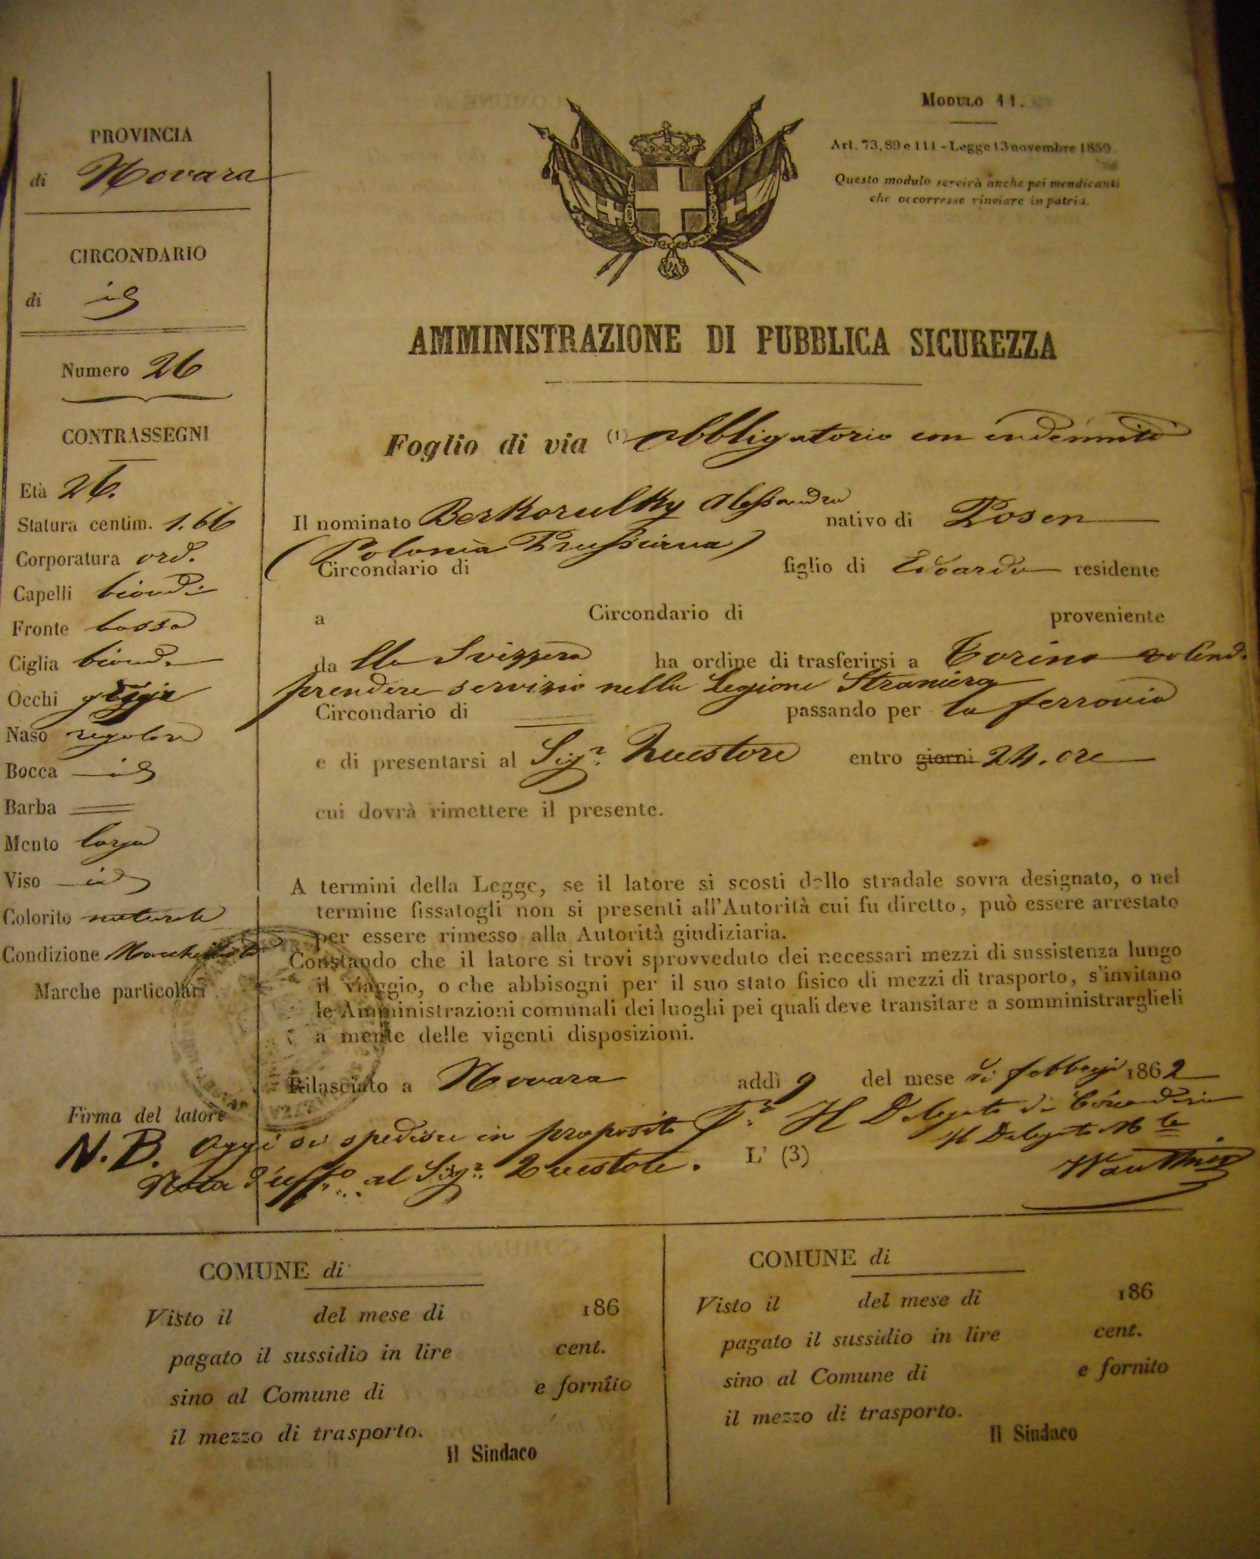 PROVINCIA
di Novara
CIRCONDARIO
di id
Numero 26
CONTRASSEGNI
Età 26.
Statura centim. 1.66
Corporatura ord.
Capelli biondi
Fronte bassa
Ciglia bionde
Occhi grigi
Naso regolare
Bocca id
Barba
Mento largo
Viso id
Colorito naturale
Condizione
Marche particolari
Firma del latore
Modulo 11.
Art. 73, 89 e 111 - Legge 13 novembre 1859
Questo modulo servirà anche pei mendicanti
che occorresse rinviare in patria.
AMMINISTRAZIONE DI PUBBLICA SICUREZZA
Foglio di via (1) obbligatorio con indennità
Il nominato Alessandro nativo di Posen
(Polonia Prussiana)
Circondario di figlio di Edoardo residente
a Circondario di proveniente
da lla Svizzera ha ordine di trasferirsi a Torino volendo
prendere servizio nella Legione Straniera
Circondario di passando per la ferrovia
e di presentarsi al Sigr. Questore entro giorni 24. ore
cui dovrà rimettere il presente.
A termini della Legge, se il latore si scosti dallo stradale sovra designato, o nel
termine fissatogli non si presenti all'Autorità cui fu diretto, può essere arrestato
per essere rimesso alla Autorità giudiziaria.
Constando che il latore si trovi sprovveduto dei necessari mezzi di sussistenza lungo
il viaggio, o che abbisogni per il suo stato fisico di mezzi di trasporto, s'invitano
le Amministrazioni comunali dei luoghi pei quali deve transitare a somministrarglieli
a mente delle vigenti disposizioni.
Rilasciato a Novara addì 9 del mese di febbrajo 1862
Il Delegato di Circondario
Il Delegato Mle
L' (3)
N.B. Oggi si spedisce in proposito
Nota d'uffo. al Sigr. Questore.
COMUNE di
Visto il del mese di 186
pagato il sussidio in lire cent.
sino al Comune di e fornito
il mezzo di trasporto.
Il Sindaco
COMUNE di
Visto il del mese di 186
pagato il sussidio in lire cent.
sino al Comune di e fornito
il mezzo di trasporto.
Il Sindaco